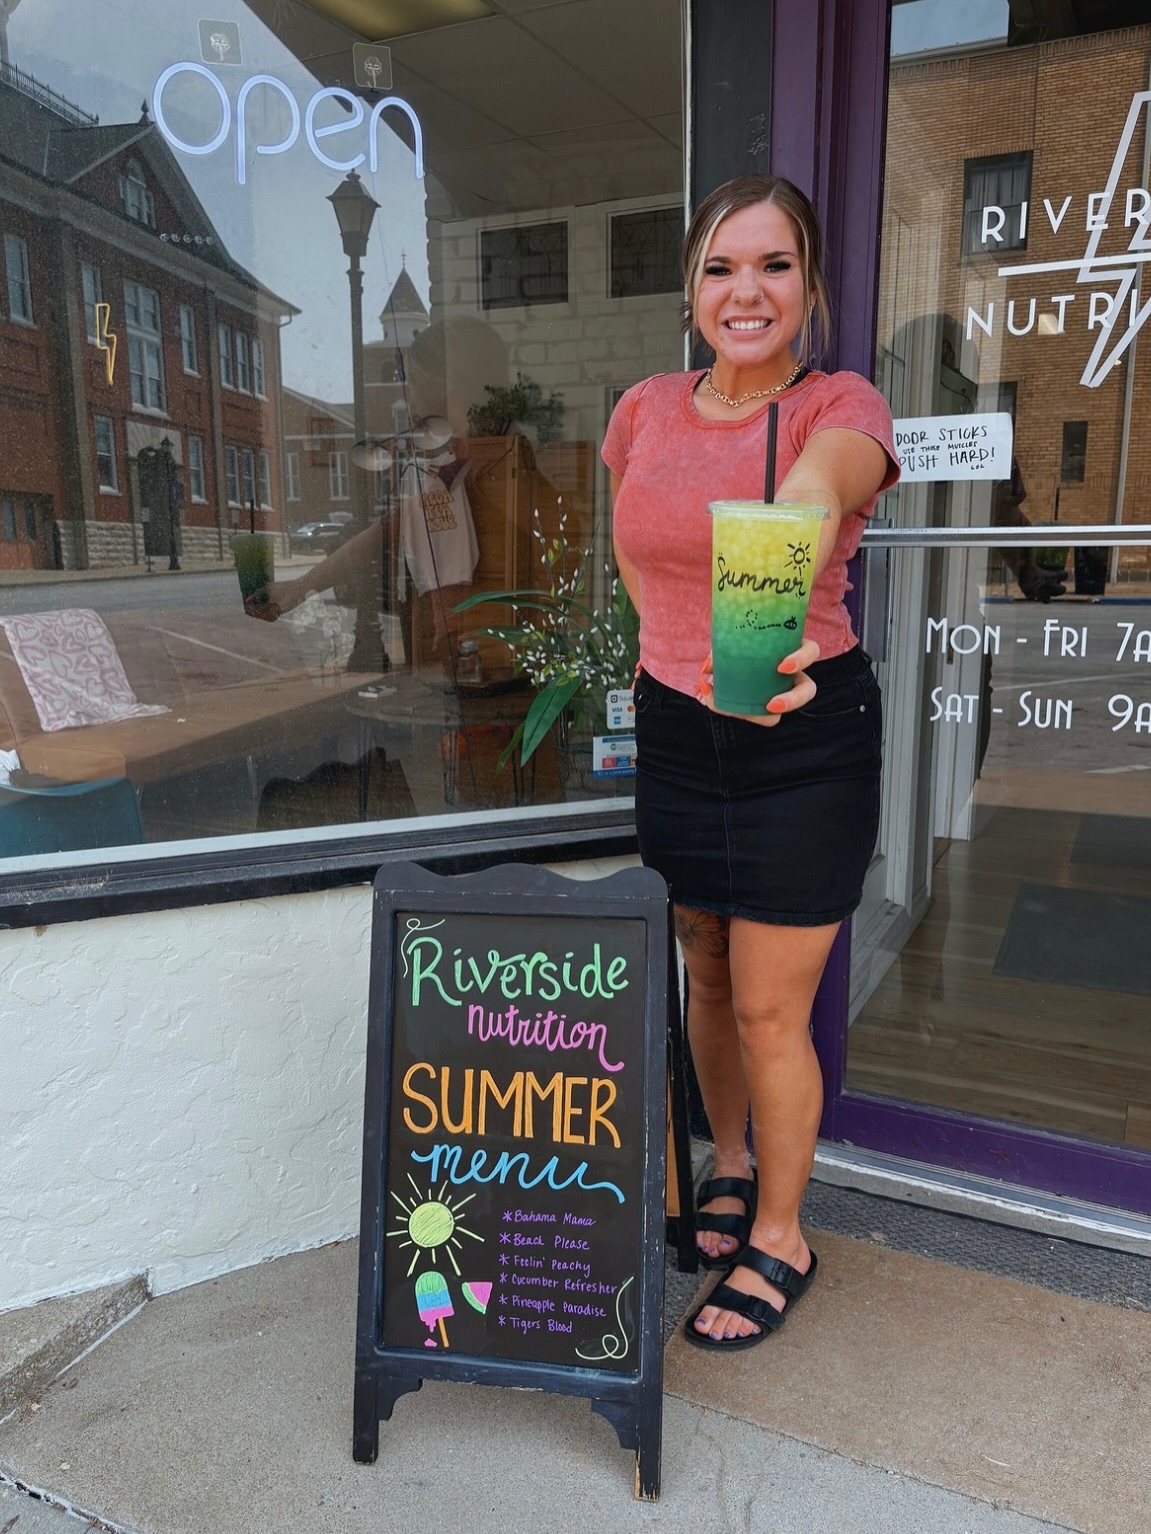 open
RIVER
NUTRI
DOOR STICKS
USE THOSE MUSCLES
PUSH HARD!
LOL
Summer
MON - FRI 7A
SAT - SUN 9A
VISA
Riverside
nutrition
SUMMER
menu
*Bahama Mama
*Beach Please
*Feelin' Peachy
*Cucumber Refresher
*Pineapple Paradise
*Tigers Blood